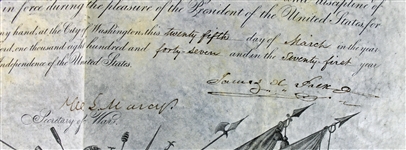 in force during the pleasure of the President of the United States for
my hand, at the City of Washington, this twenty fifth day of March in the year
ord, one thousand eight hundred and forty-seven and in the Seventy-first year
ndependence of the United States.
James K. Polk
W. L. Marcy
Secretary of War.